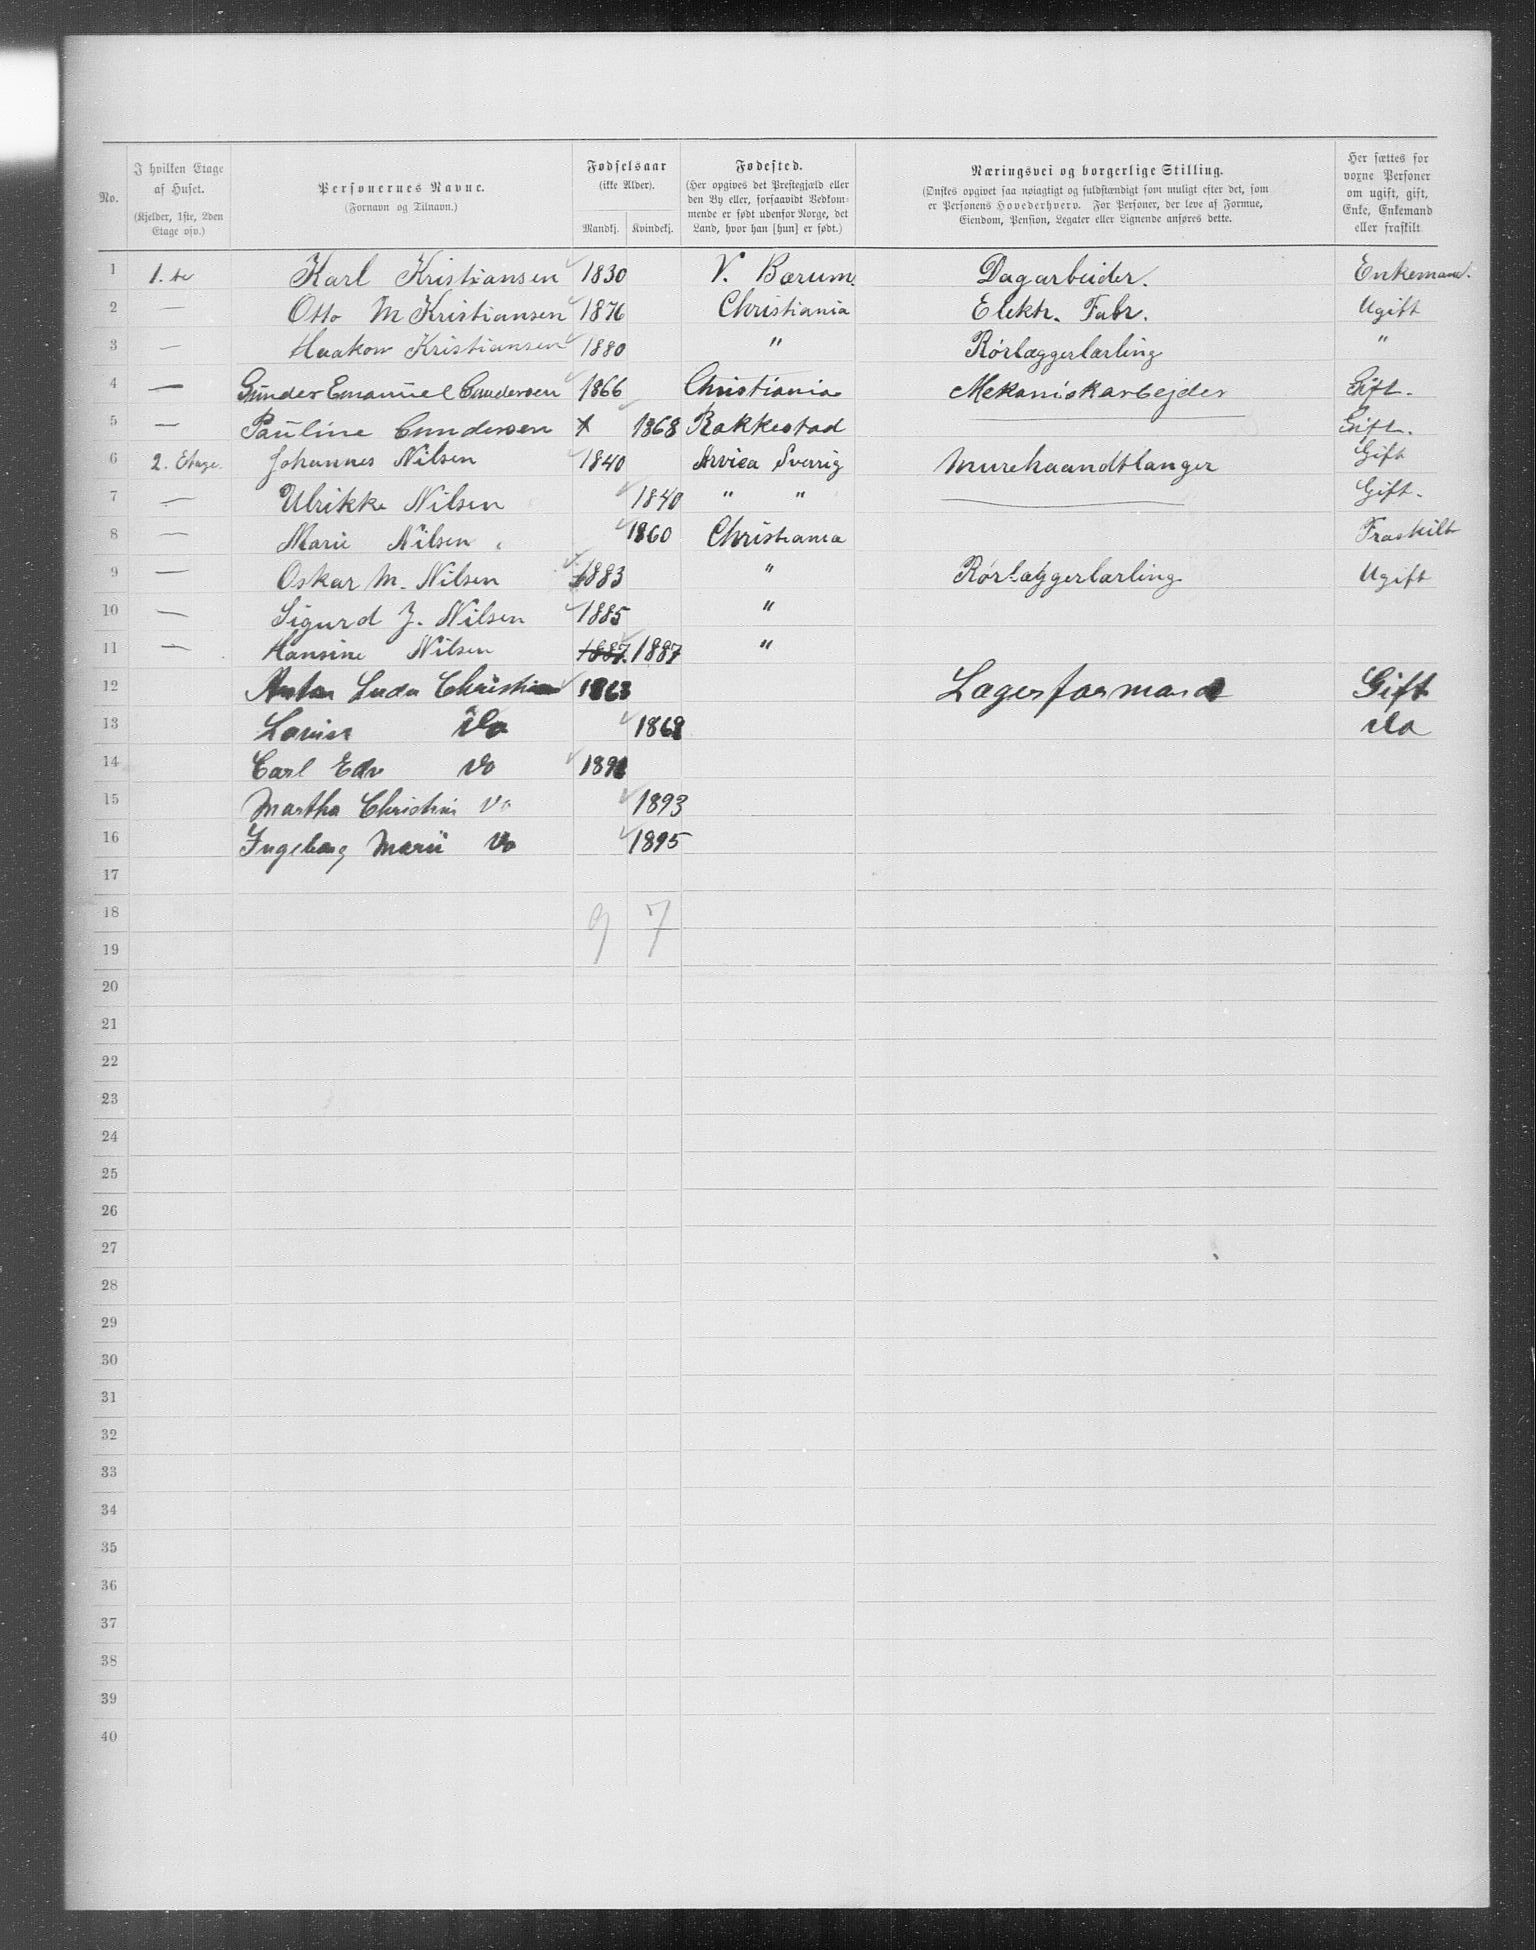 No.
I hvilken Etage af Huset.
(Kjelder, 1ste, 2den Etage osv.)
Personernes Navne.
(Fornavn og Tilnavn.)
Fødselsaar
(ikke Alder).
Mandkj. Kvindekj.
Fødested.
(Her opgives det Prestegjæld eller
den By eller, forsaavidt Vedkom-
mende er født udenfor Norge, det
Land, hvor han [hun] er født.)
Næringsvei og borgerlige Stilling.
(Ønskes opgivet saa nøiagtigt og fuldstændigt som muligt efter det, som
er Personens Hovederhverv. For Personer, der leve af Formue,
Eiendom, Pension, Legater eller Lignende anføres dette.
Her sættes for
voxne Personer
om ugift, gift,
Enke, Enkemand
eller fraskilt
1 1.te Karl Kristiansen 1830 V. Bærum. Dagarbeider. Enkemand.
2 — Otto M Kristiansen 1876 Christiania Elektr. Fabr. Ugift
3 — Haakon Kristiansen 1880 " Rörlæggerlærling "
4 — Gunder Emanuel Gundersen 1866 Christiania Mekaniskarbejder Gift.
5 — Pauline Gundersen x 1868 Rakkestad — Gift.
6 2. Etage. Johannes Nilsen 1840 Arvica Sverrig Murehaandtlanger Gift
7 — Ulrikke Nilsen 1840 " " — Gift.
8 — Marie Nilsen 1860 Christiania Fraskilt
9 — Oskar M. Nilsen 1883 " Rörlæggerlærling Ugift
10 — Sigurd J. Nilsen 1885 "
11 — Hansine Nilsen 1887 1887 "
12 Anton Christian 1863 Lagerformand Gift
13 Lovise Do 1868 Do
14 Carl Edv Do 189
15 Martha Christine Do 1893
16 Ingeborg Marie Do 1895
17
18 9 7
19
20
21
22
23
24
25
26
27
28
29
30
31
32
33
34
35
36
37
38
39
40